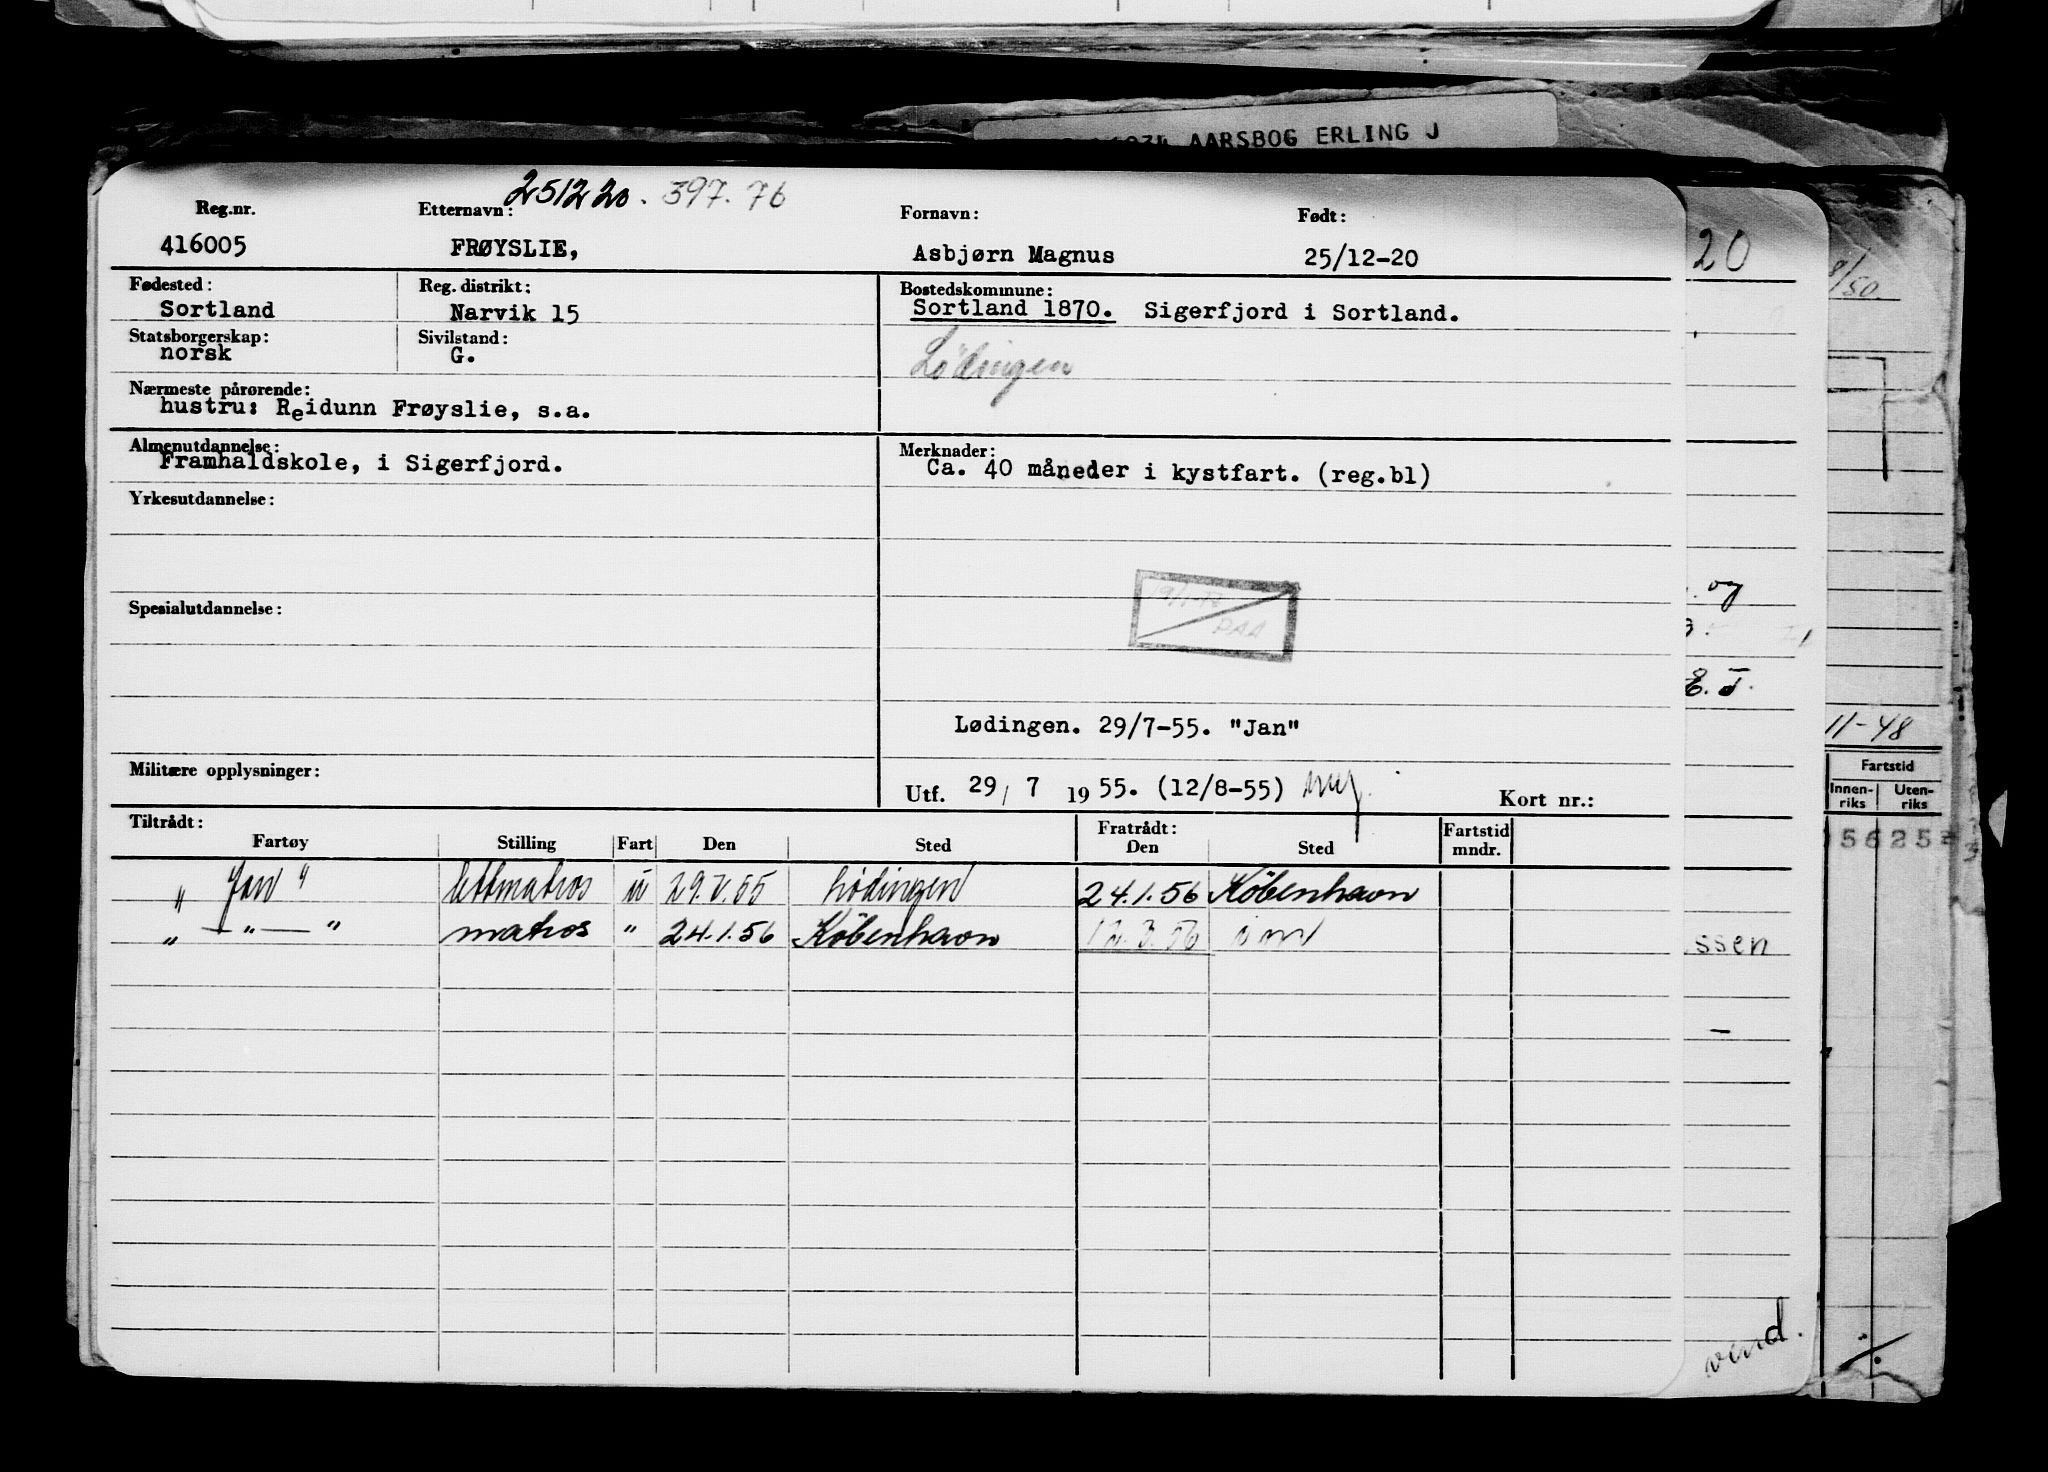 AARSBOG ERLING J
251220. 397.76
Reg.nr. Etternavn: Fornavn: Født:
416005 FRØYSLIE, Asbjørn Magnus 25/12-20
20
8/50.
Fødested: Reg. distrikt: Bostedskommune:
Sortland Narvik 15 Sortland 1870. Sigerfjord i Sortland.
Statsborgerskap: Sivilstand:
norsk G. Lödingen
Nærmeste pårørende:
hustru: Reidunn Frøyslie, s.a.
Almenutdannelse: Merknader:
Framhaldskole, i Sigerfjord. Ca. 40 måneder i kystfart. (reg.bl)
Yrkesutdannelse:
og
PAA
Spesialutdannelse:
E. T.
Lødingen. 29/7-55. "Jan"
11-48
Militære opplysninger:
Utf. 29/ 7 1955. (12/8-55) Kort nr.:
Fartstid
Innen-riks Uten-riks
Tiltrådt: Fratrådt: Fartstid
Fartøy Stilling Fart Den Sted Den Sted mndr.
56252
" Jan " lettmatros u 29.V.55 Lødingen 24.1.56 København
" — " — " matros " 24.1.56 København 12.3.56
ssen
vend.